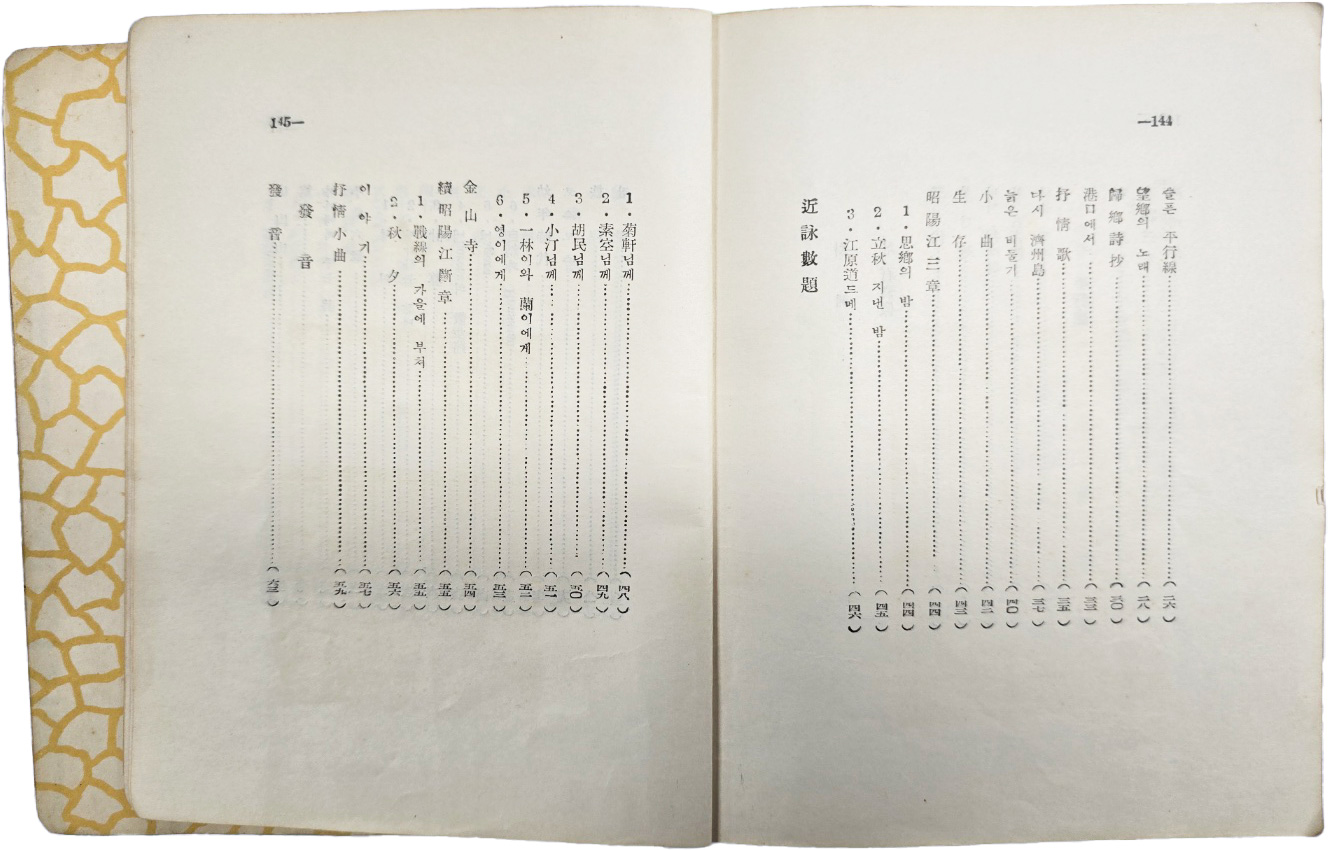 —144
슬픈 平行線(二六)
望鄕의 노래(二八)
歸鄕詩抄(三〇)
港口에서(三三)
抒情歌(三五)
다시 濟州島(三七)
늙은 비둘기(四〇)
小曲(四二)
生存(四三)
昭陽江三章(四四)
1・思鄕의 밤(四四)
2・立秋 지낸 밤(四五)
3・江原道 드메(四六)
近詠數題
145—
1・菊軒님께(四八)
2・素空님께(四九)
3・胡民님께(五〇)
4・小汀님께(五一)
5・一林이와 蘭이에게(五二)
6・영이에게(五三)
金山寺(五四)
續昭陽江斷章(五五)
1・戰線의 가을에 부쳐(五五)
2・秋夕(五六)
이야기(五七)
抒情小曲(五九)
發音
發音(六三)